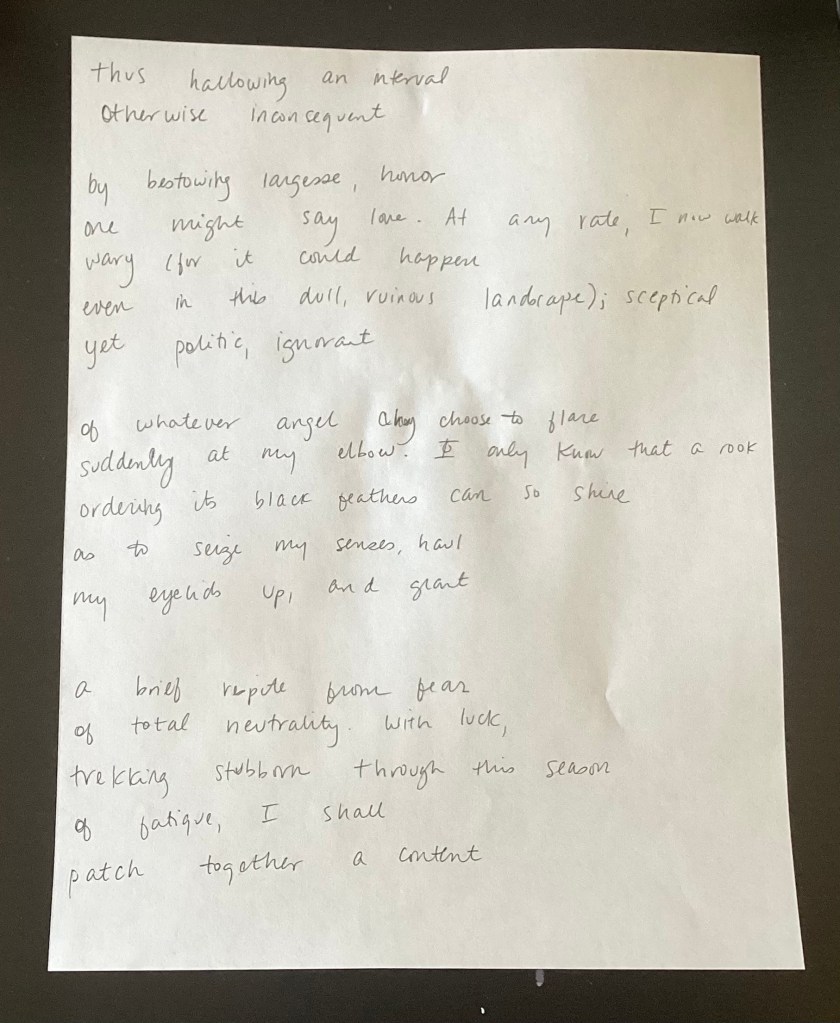 thus hallowing an interval
Otherwise inconsequent
by bestowing largesse, honor
one might say love. At any rate, I now walk
wary (for it could happen
even in this dull, ruinous landscape); sceptical
yet politic, ignorant
of whatever angel choose to flare
suddenly at my elbow. I only know that a rook
ordering its black feathers can so shine
as to seize my senses, haul
my eyelids up, and grant
a brief from fear
of total neutrality. With luck,
trekking stubborn through this season
of fatigue, I shall
patch together a content